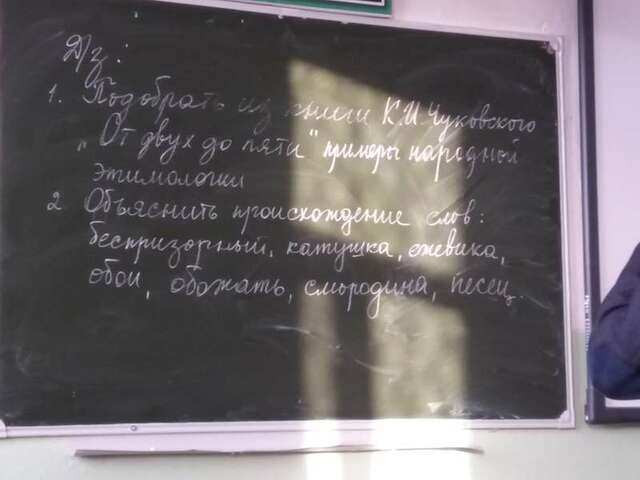 Д/з:
1. Подобрать из книги К.И.Чуковского
„От двух до пяти" примеры народной
этимологии
2 Объяснить происхождение слов:
беспризорный, катушка, ежевика,
обои, обожать, смородина, песец.